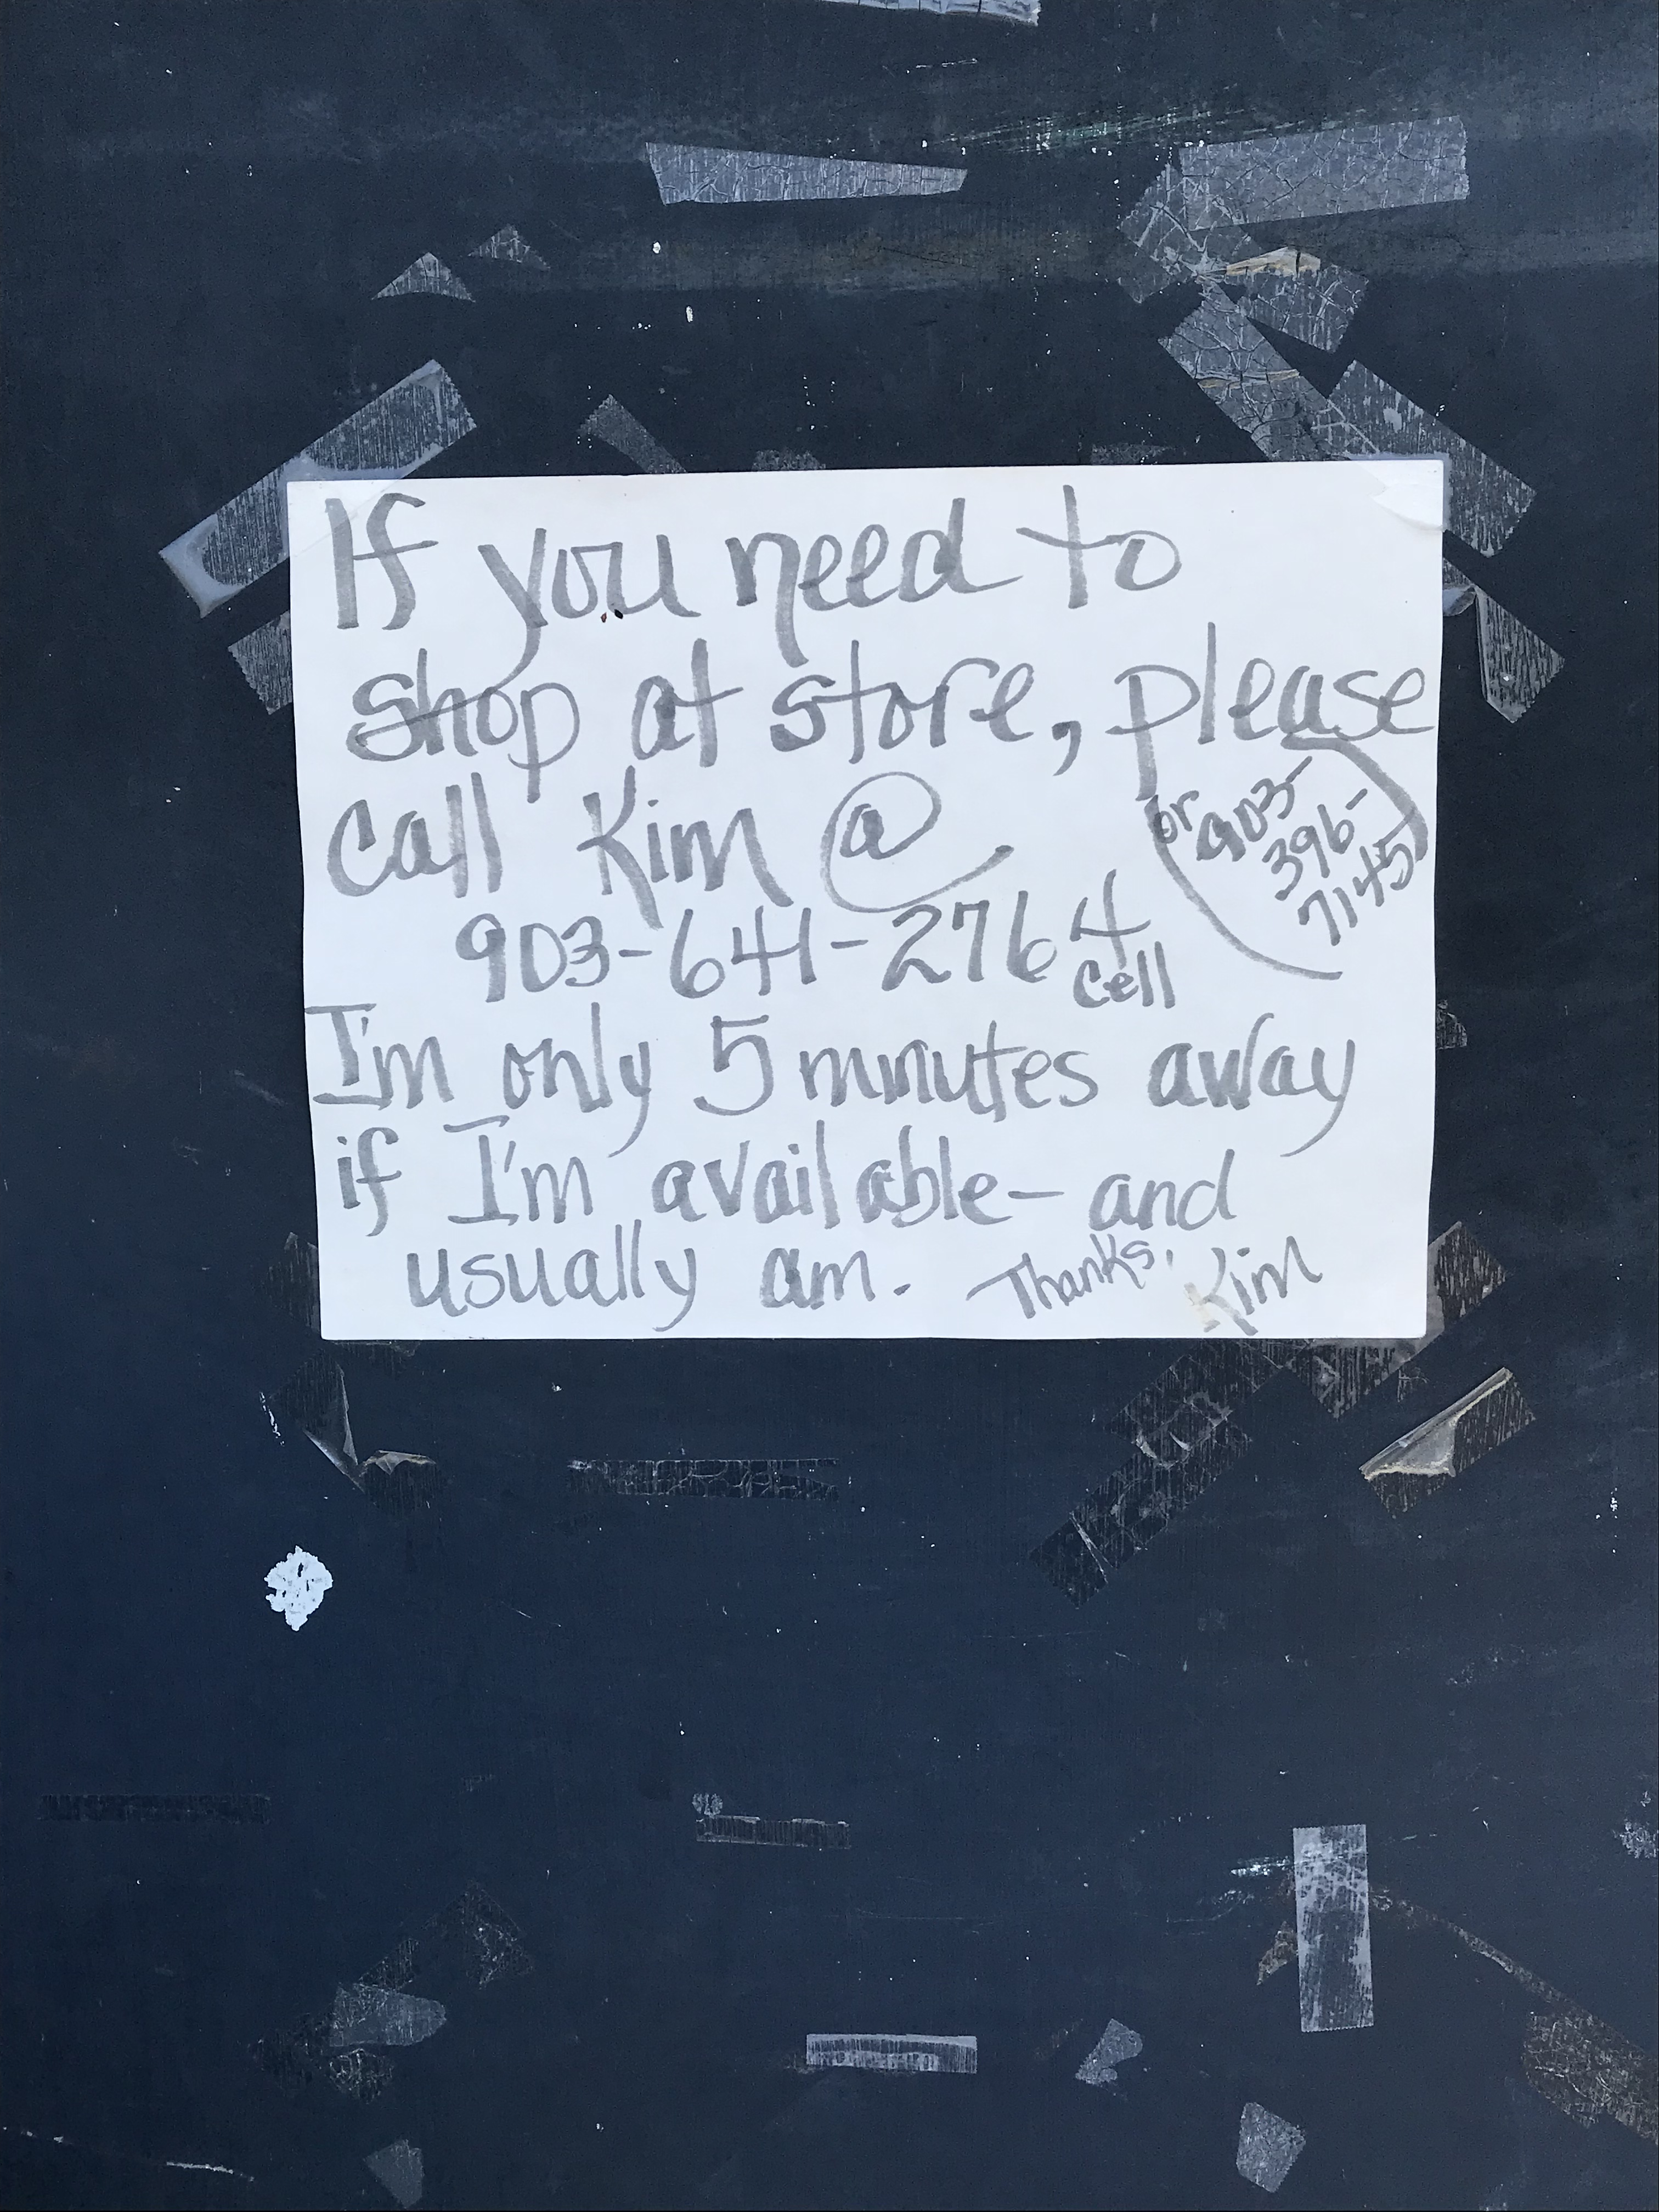 If you need to
shop at store, please
call Kim @
903-641-2764 cell
or 903-
396-
7145
I'm only 5 minutes away
if I'm available - and
usually am. Thanks, Kim